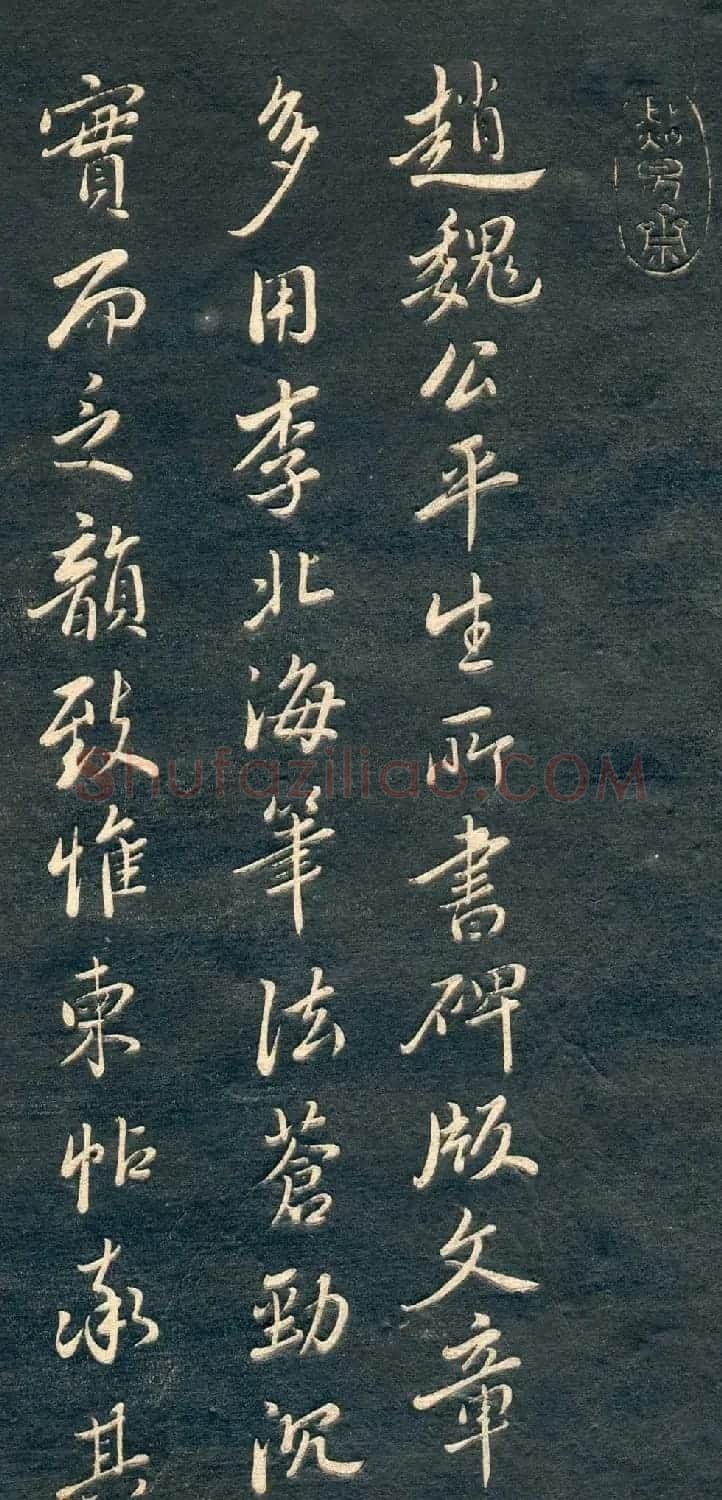 趙魏公平生所書碑版文章
多用李北海筆法蒼勁沉
實而乏韻致惟柬帖家其
Shufaziliao.COM